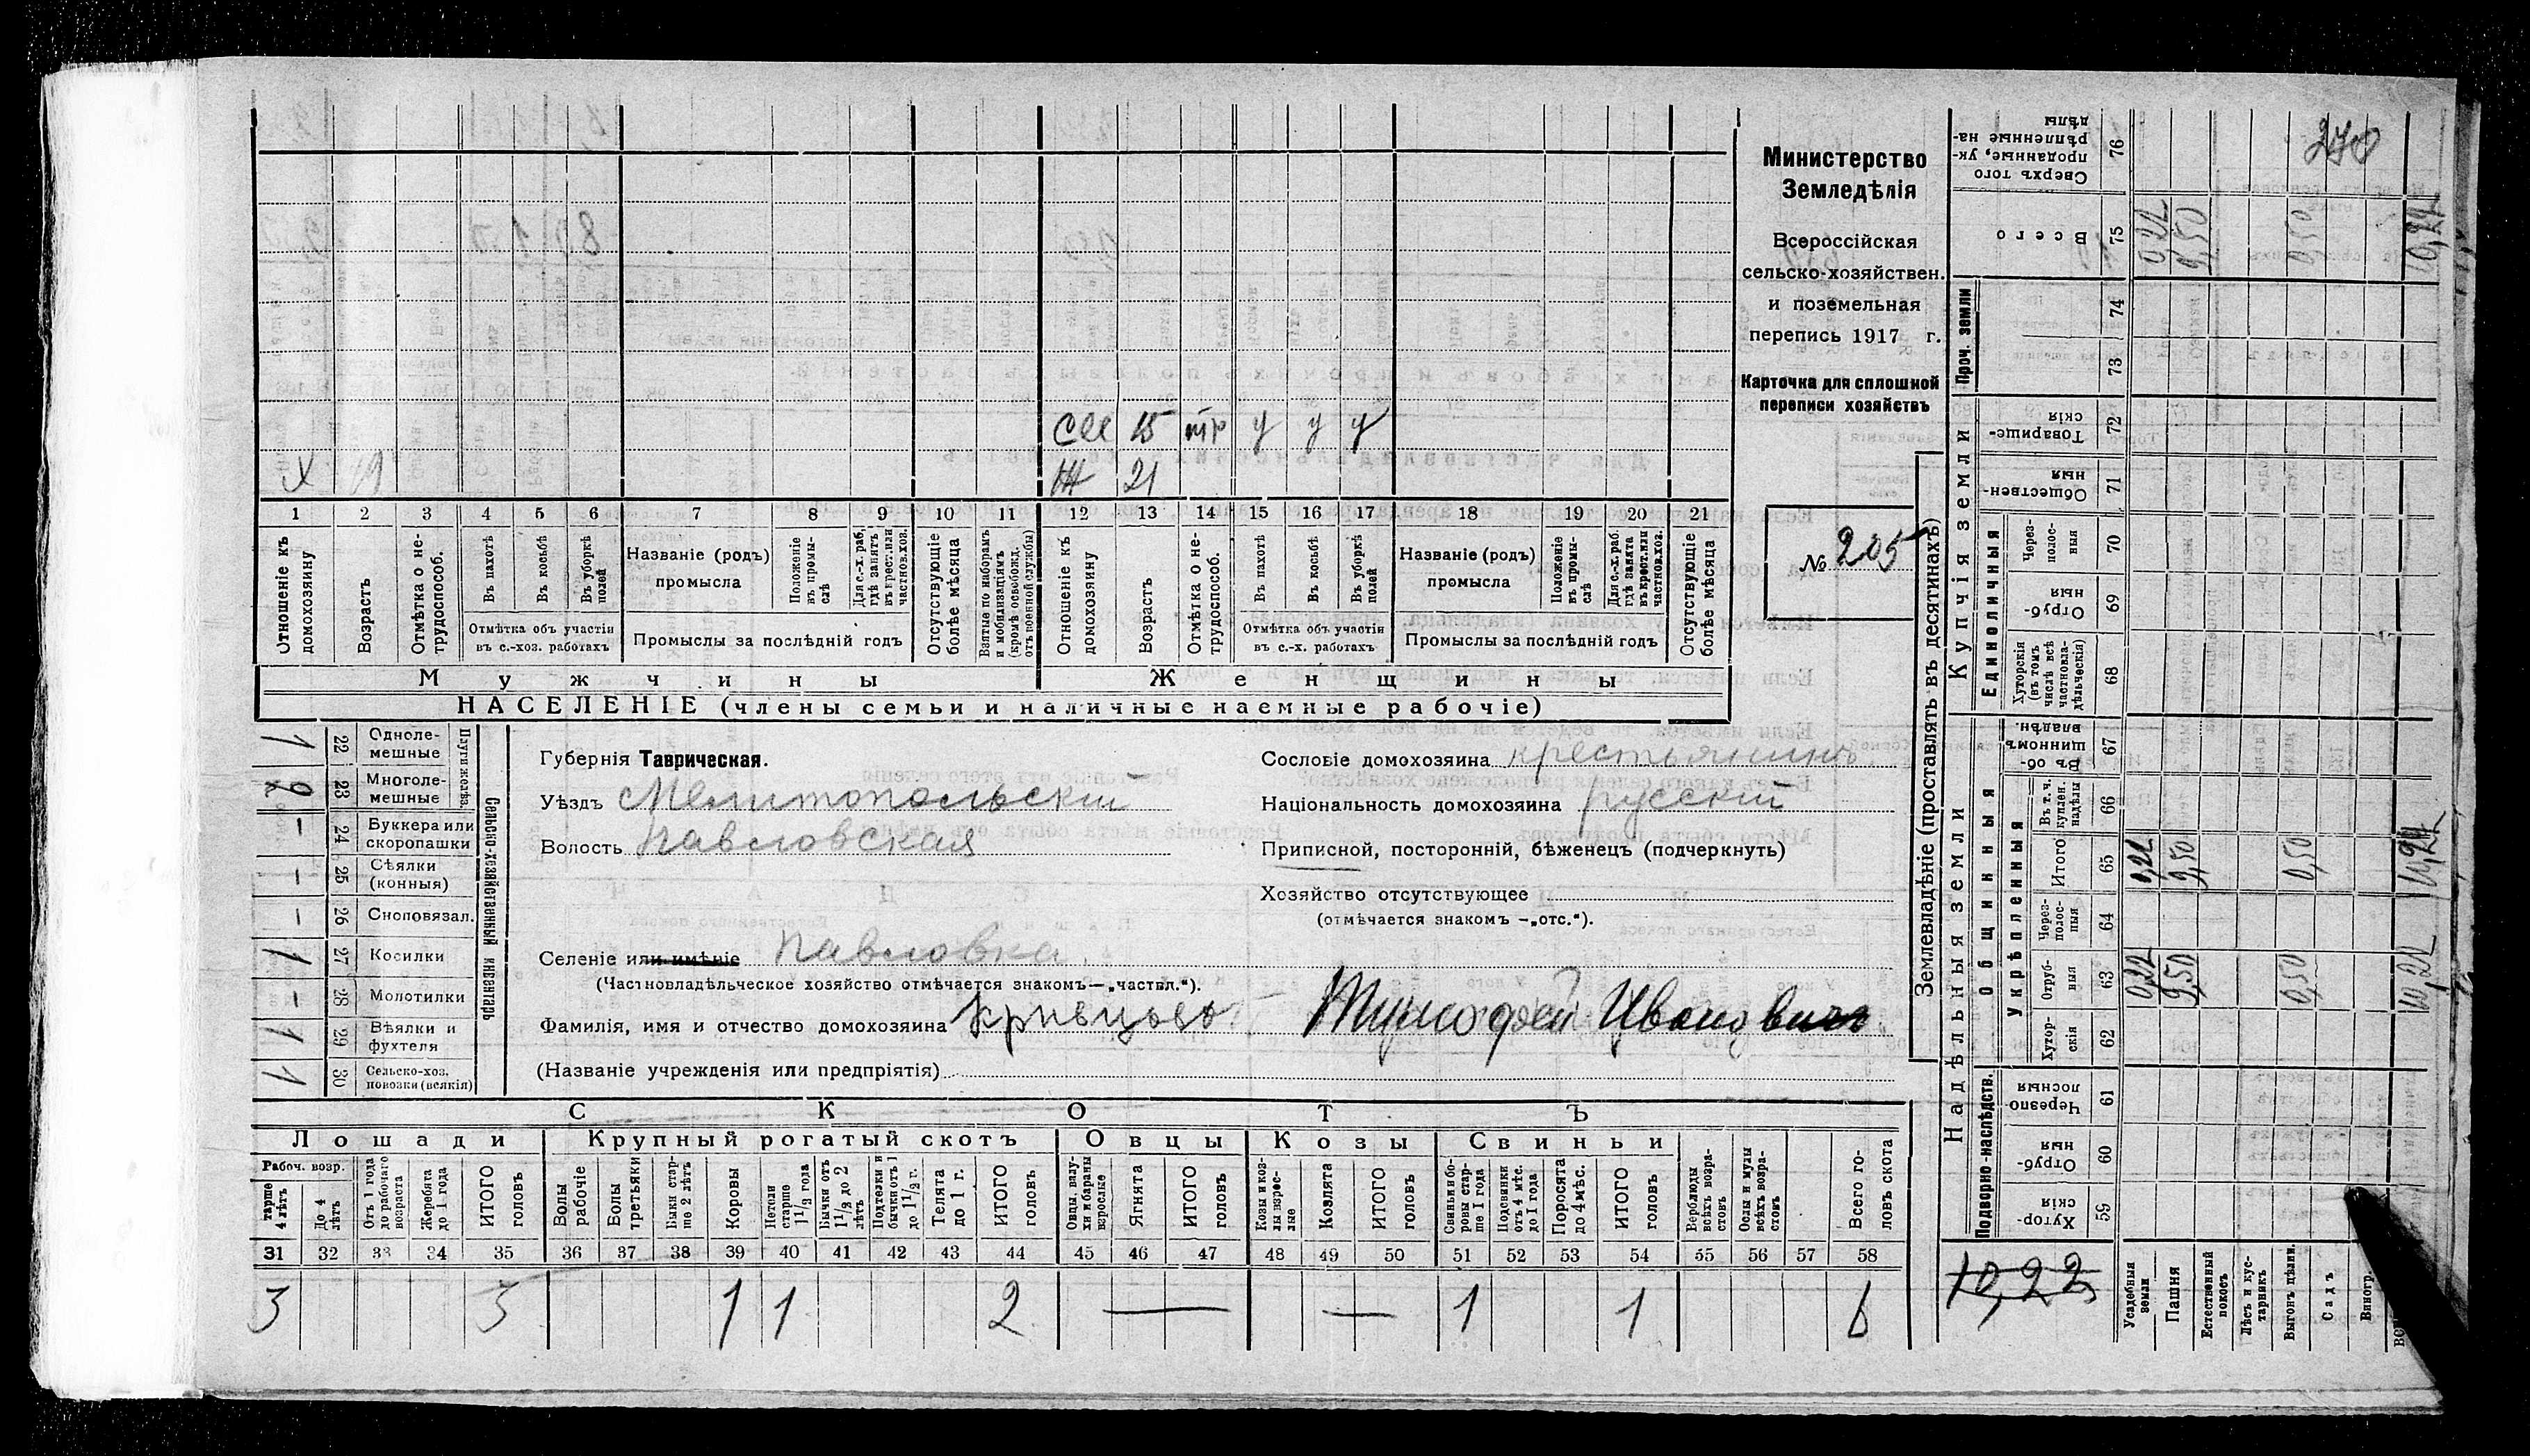 Министерство
Земледѣлія
Всероссійская
сельско-хозяйствен.
и поземельная
перепись 1917 г.
Карточка для сплошной
переписи хозяйствъ
№ 205
270
СЕ 15 тр у у у
Х 19 Ж 21
1 2 3 4 5 6 7 8 9 10 11 12 13 14 15 16 17 18 19 20 21
Отношеніе къ домохозяину
Возрастъ
Отмѣтка о не-трудоспособ.
Въ пахотѣ
Въ косьбѣ
Въ уборкѣ полей
Отмѣтка объ участіи въ с.-хоз. работахъ
Названіе (родъ) промысла
Положеніе въ промы-слѣ
Для с.-х. раб. гдѣ занятъ въ крест. или частнов. хоз.
Промыслы за послѣдній годъ
Отсутствующіе болѣе мѣсяца
Взятые по наборамъ и мобилизаціямъ (кромѣ освобожд. отъ военной службы)
Отношеніе къ домохозяину
Возрастъ
Отмѣтка о не-трудоспособ.
Въ пахотѣ
Въ косьбѣ
Въ уборкѣ полей
Отмѣтка объ участіи въ с.-х. работахъ
Названіе (родъ) промысла
Положеніе въ промы-слѣ
Для с.-х. раб. гдѣ занята въ крест. или частнов. хоз.
Промыслы за послѣдній годъ
Отсутствующіе болѣе мѣсяца
Мужчины Женщины
НАСЕЛЕНІЕ (члены семьи и наличные наемные рабочіе)
Сельско-хозяйственный инвентарь
Плуги желѣз.
1 22 Одноле-мешные
2 23 Многоле-мешные
– 24 Буккера или скоропашки
– 25 Сѣялки (конныя)
– 26 Сноповязал.
1 27 Косилки
– 28 Молотилки
1 29 Вѣялки и фухтеля
1 30 Сельско-хоз. повозки (всякія)
Губернія Таврическая.
Уѣздъ Мелитопольскій
Волость Павловская
Селеніе или имѣніе Павловка
(Частновладѣльческое хозяйство отмѣчается знакомъ—„частвл.“).
Фамилія, имя и отчество домохозяина Кривцовъ Тимофей Иванович
(Названіе учрежденія или предпріятія)
Сословіе домохозяина крестьянинъ
Національность домохозяина русскій
Приписной, посторонній, бѣженец (подчеркнуть)
Хозяйство отсутствующее
(отмѣчается знакомъ —„отс.“).
СКОТЪ
Лошади Крупный рогатый скотъ Овцы Козы Свиньи
Рабоч. возр.
тарше 4 лѣтъ
До 4 лѣтъ
Отъ 1 года до рабочаго возраста
Жеребята до 1 года
ИТОГО головъ
Волы рабочіе
Волы третьяки
Быки стар-ше 2 лѣтъ
Коровы
Нетели старше 1½ года
Бычки отъ 1½ до 2 лѣтъ
Подтелки и бычки отъ 1 до 1½ г.
Телята до 1 г.
ИТОГО головъ
Овцы, валу-хи и бараны взрослые
Ягнята
ИТОГО головъ
Козы и коз-лы взрос-лые
Козлята
ИТОГО головъ
Свиньи и бо-ровы стар-ше 1 года
Подсвинки отъ 4 мѣс. до 1 года
Поросята до 4 мѣс.
ИТОГО головъ
Верблюды всѣхъ возра-стовъ
Ослы и мулы всѣхъ возра-стовъ
Всего го-ловъ скота
31 32 33 34 35 36 37 38 39 40 41 42 43 44 45 46 47 48 49 50 51 52 53 54 55 56 57 58
3 3 1 1 2 — — 1 1 6
Землевладѣніе (проставлять въ десятинахъ)
Надѣльныя земли Купчія земли Проч. земли
Подворно-наслѣдств.
Общинныя
Укрѣпленныя
Единоличныя
59 Хутор-скія
60 Отруб-ныя
61 Черезпо лосныя
62 Хутор-скія
63 Отруб-ныя 0,22 9,50 0,50 10,22
64 Через-полос-ныя
65 Итого 0,22 9,50 0,50 10,22
66 Въ т. ч. куплен. надѣлы
67 Въ об-щинномъ владѣн.
68 Хуторскія (въ томъ числѣ всѣ частновла-дѣльческія)
69 Отруб-ныя
70 Через-полос-ныя
71 Обществен-ныя
72 Товарище-скія
73
74
75 Всего 0,22 9,50 0,50 10,22
76 Сверхъ того проданные, ук-рѣпленные на-дѣлы
10,22
Усадебныя земли
Пашня
Естественный покосъ
Лѣсъ и кус-тарникъ
Выгонъ цѣлин.
Садъ
Виногр.